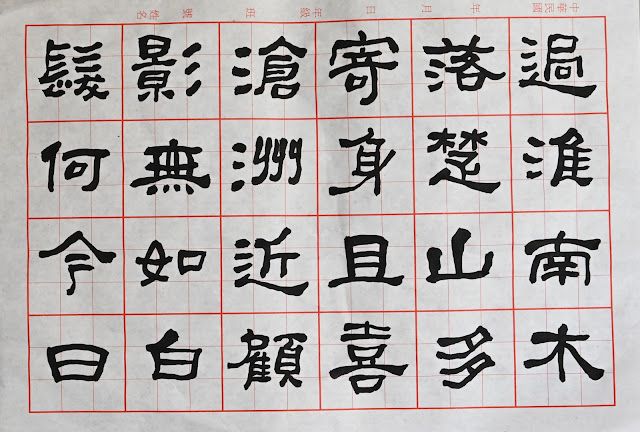 中華民國 年 月 日 年級 班 號 姓名
過淮南木
落楚山多
寄身且喜
滄洲近顧
影無如白
髮何今日